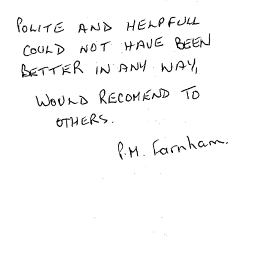 POLITE AND HELPFULL
COULD NOT HAVE BEEN
BETTER IN ANY WAY,
WOULD RECOMEND TO
OTHERS.
P.M. Farnham.